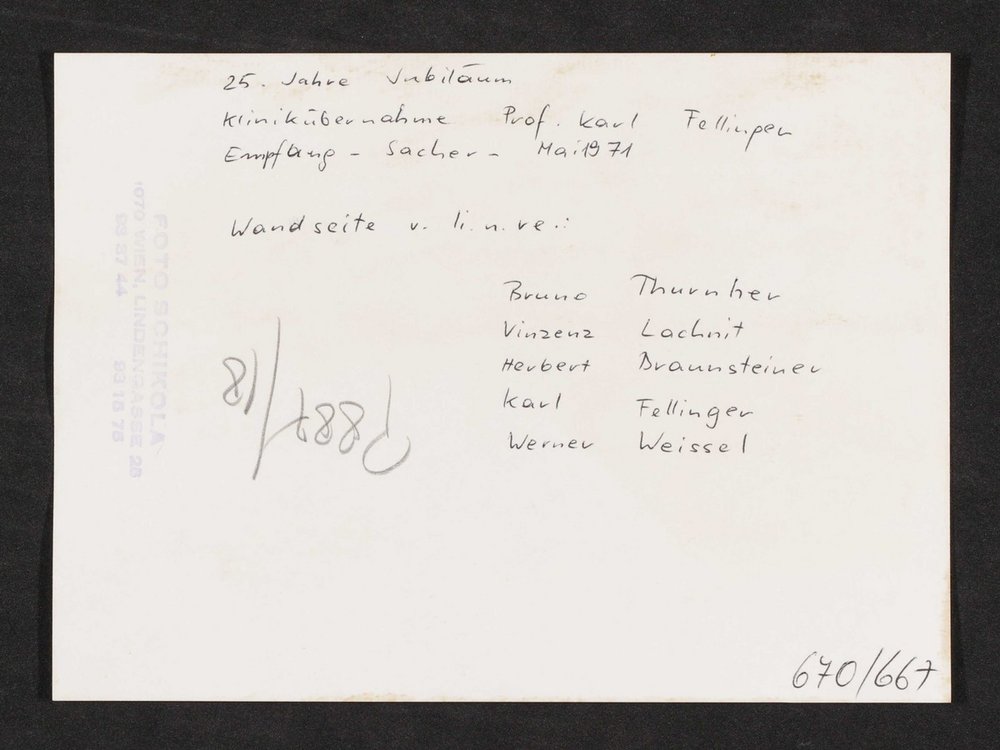 25. Jahre Jubiläum
Klinikübernahme Prof. Karl Fellinger
Empfang - Sacher - Mai 1971
Wandseite v. li. n. re.:
Bruno Thurnher
Vinzenz Lachnit
Herbert Braunsteiner
Karl Fellinger
Werner Weissel
FOTO SCHIKOLA
1070 WIEN, LINDENGASSE 28
93 37 44 93 16 75
670/667